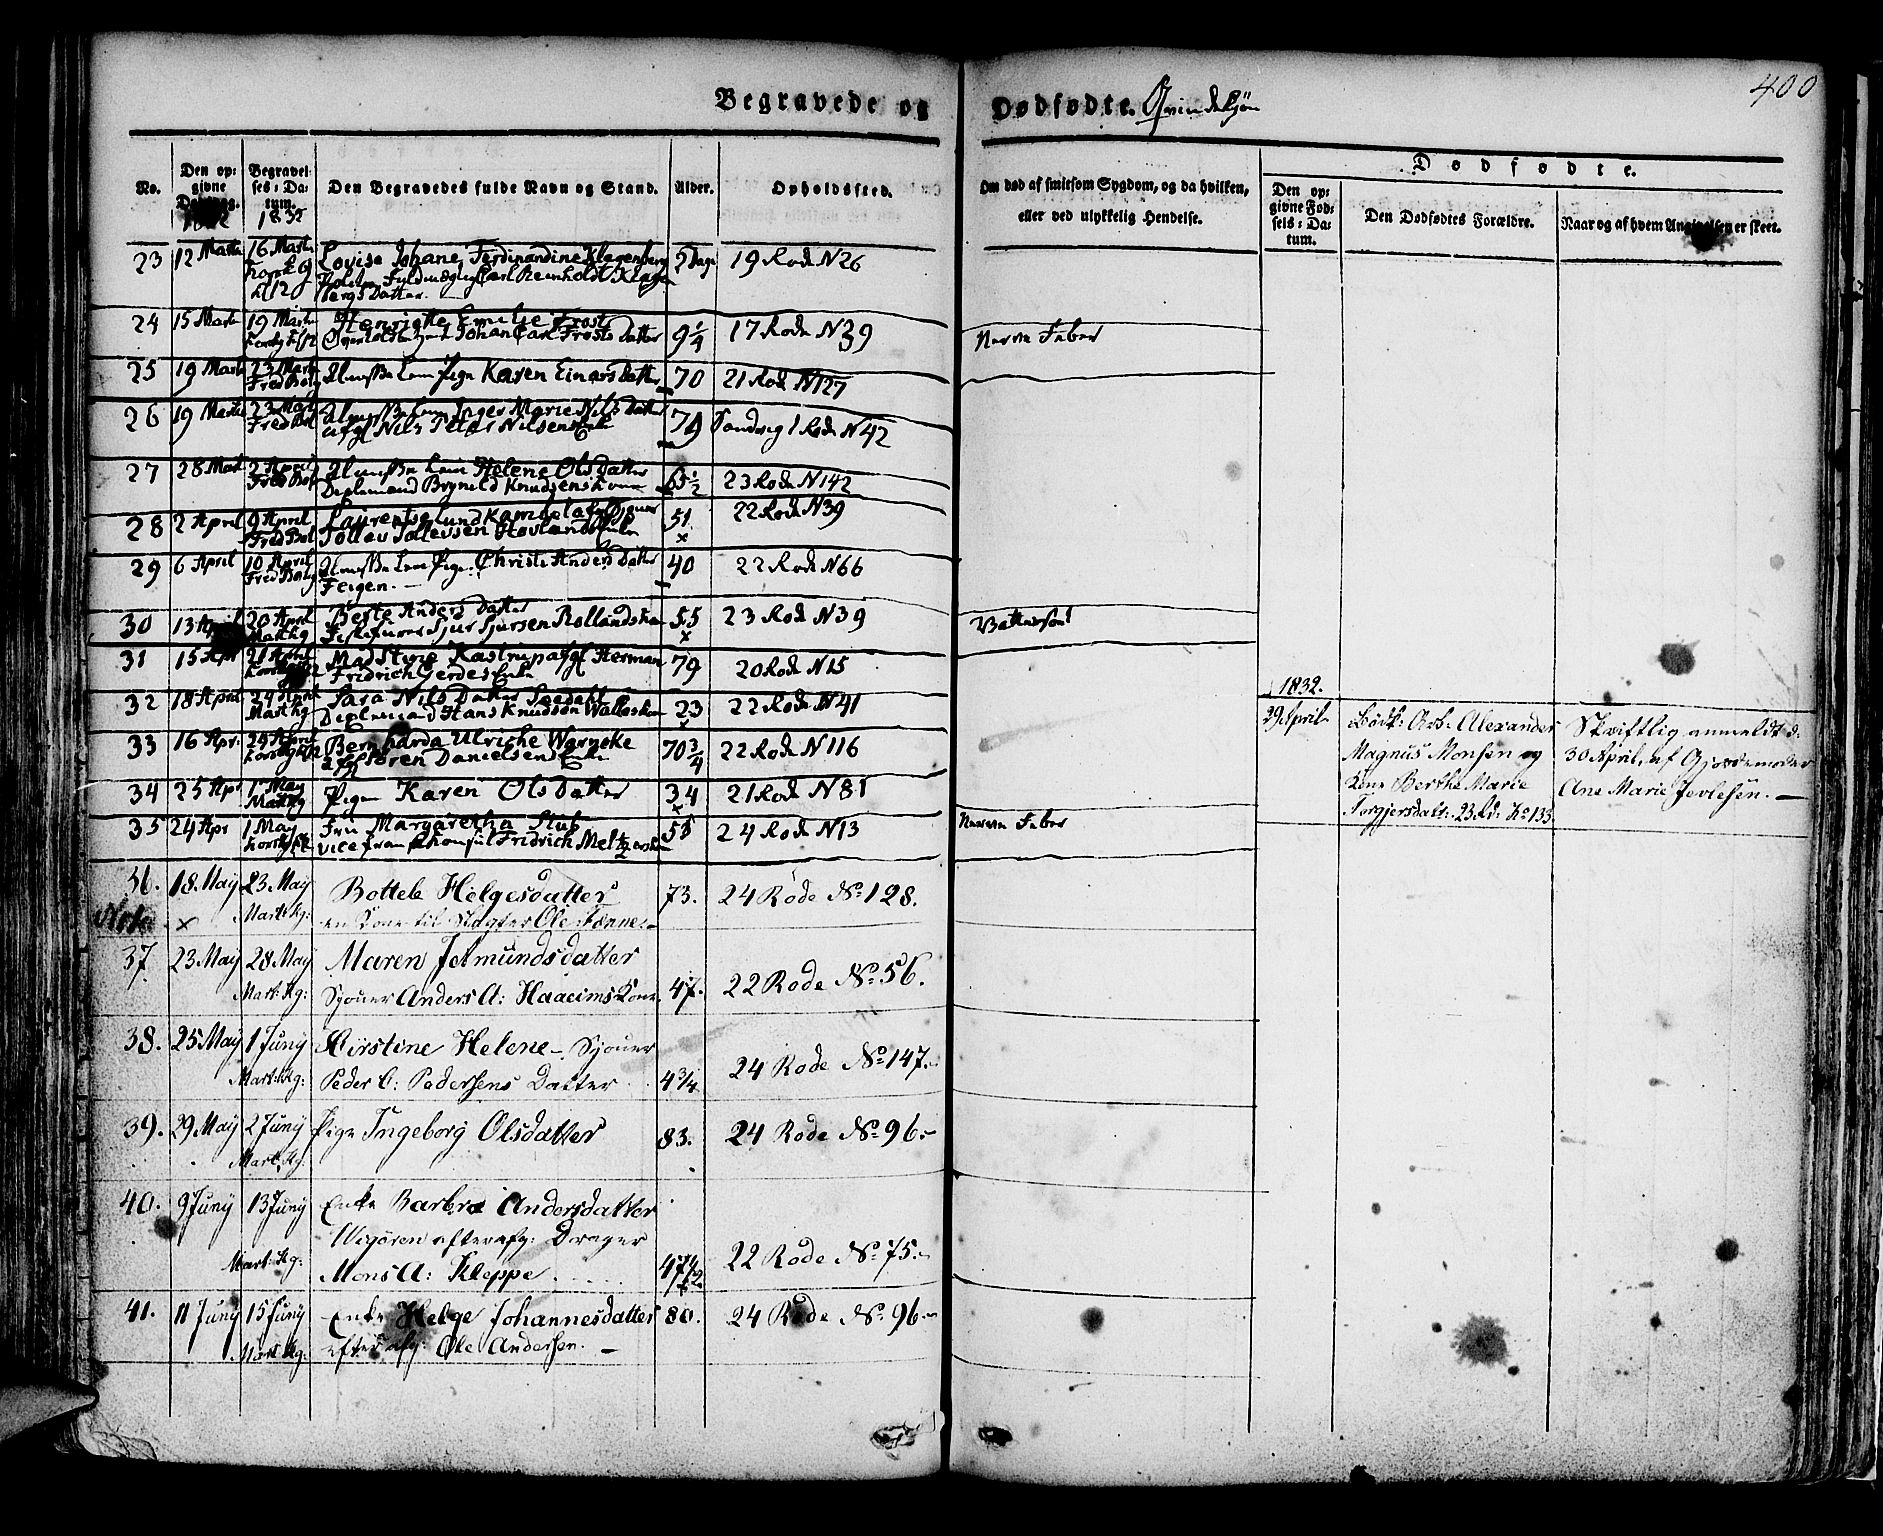 400
Begravede og Dødfødte. Qvindekjøn
No.
Den opgivne Dødsdag.
Begravelses-Datum.
Den Begravedes fulde Navn og Stand.
Alder.
Opholdssted.
Om død af smitsom Sygdom, og da hvilken,
eller ved ulykkelig Hendelse.
Dødfødte.
Den opgivne Fødsels-Datum.
Den Dødfødtes Forældre.
Naar og af hvem Angivelsen er skeet.
1832
23 12 Marts 16 Marts Lovise Johane Ferdinandine Klagenberg 5 Dage 19 Rode N 26
Fuldmægtig Carl Reinholdt Klagen
bergs Datter.
24 15 Marts 19 Marts Henriette Emilie Frost 9 1/4 17 Rode N 39 Nerve Feber
Johan Carl Frosts Datter
25 19 Marts 23 Marts Pige Karen Einars Datter 70 21 Rode N 127
26 19 Marts 23 Marts Lem Inger Marie Nils Datter 79 Sandvig 1 Rode N 42
afg Nils Peter Nilsens Enke
27 28 Mart 2 April Lem Helene Ols Datter 65 1/2 23 Rode N 142
Brynild Knudsens Kone
28 2 April 9 April 51 22 Rode N 39
Tollev Tollevsen Hovlands Enke
29 6 April 10 April Lem Pige Christi Anders Datter 40 22 Rode N 66
Feigen.
30 13 Apr 20 April Berte Anders Datter 55 23 Rode N 39
Mart Kg Sjur Sjursen Rollands
31 15 Apr 21 April Kastrup afg Herman 79 20 Rode N 15
Fridrich Gerdes Enke
32 18 April 24 April Sara Nils Datter 23 22 Rode N 41
Mart Kg Hans Knudsen
33 16 Apr 24 April Bernharda Ulriche Warneke 70 3/4 22 Rode N 116
afg Søren Danielsens Enke
34 25 Apr 1 May Pigen Karen Ols Datter 34 21 Rode N 81
Mart Kg
35 24 Apr 1 May Fru Margaretha Stub 55 24 Rode N 13 Nerve Feber
Fridrich Meltzers
36. 18. May 23 May Bottele Helgesdatter 73. 24 Rode No 128.
Nota × Mart: Kg: en Kone til Slagter Ole
37 23 May 28 May Maren Jetmundsdatter
Mart: Kg: Sjouer Anders A: Haaeims Kone 47. 22 Rode No 56.
38. 25 May 1 Juny Kirstine Helene - Sjouer
Mart: Kg: Peder C: Pedersens Datter 4 3/4 24 Rode No 147.
39. 29 May 2 Juny Pige Ingeborg Olsdatter 83. 24 Rode No 96
Mart: Kg:
40. 9 Juny 13 Juny Enke Barbra Andersdatter
Wigøren efter afg: Drager
Mart: Kg: Mons A: Kleppe 47 1/2 22 Rode No 75.
41. 11 Juny 15 Juny Enke Helge Johannesdatter 80. 24 Rode No 96
Mart: Kg: efter afg: Ole Andersen.
1832.
29 April Alexander
Magnus Monsen og
Kone Berthe Marie
Torgjersdatt: 23 Rd: No 133
Skriftlig anmeldt d:
30 April, af Gjordemoder
Ane Marie